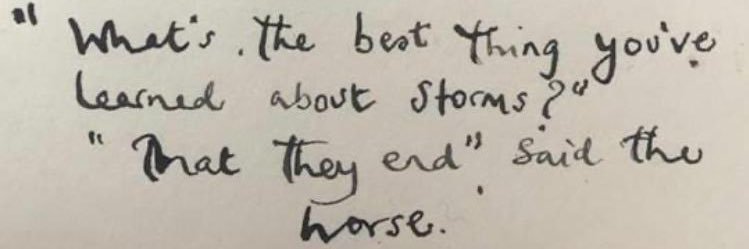 "What's the best thing you've
learned about storms?"
"That they end" said the
horse.